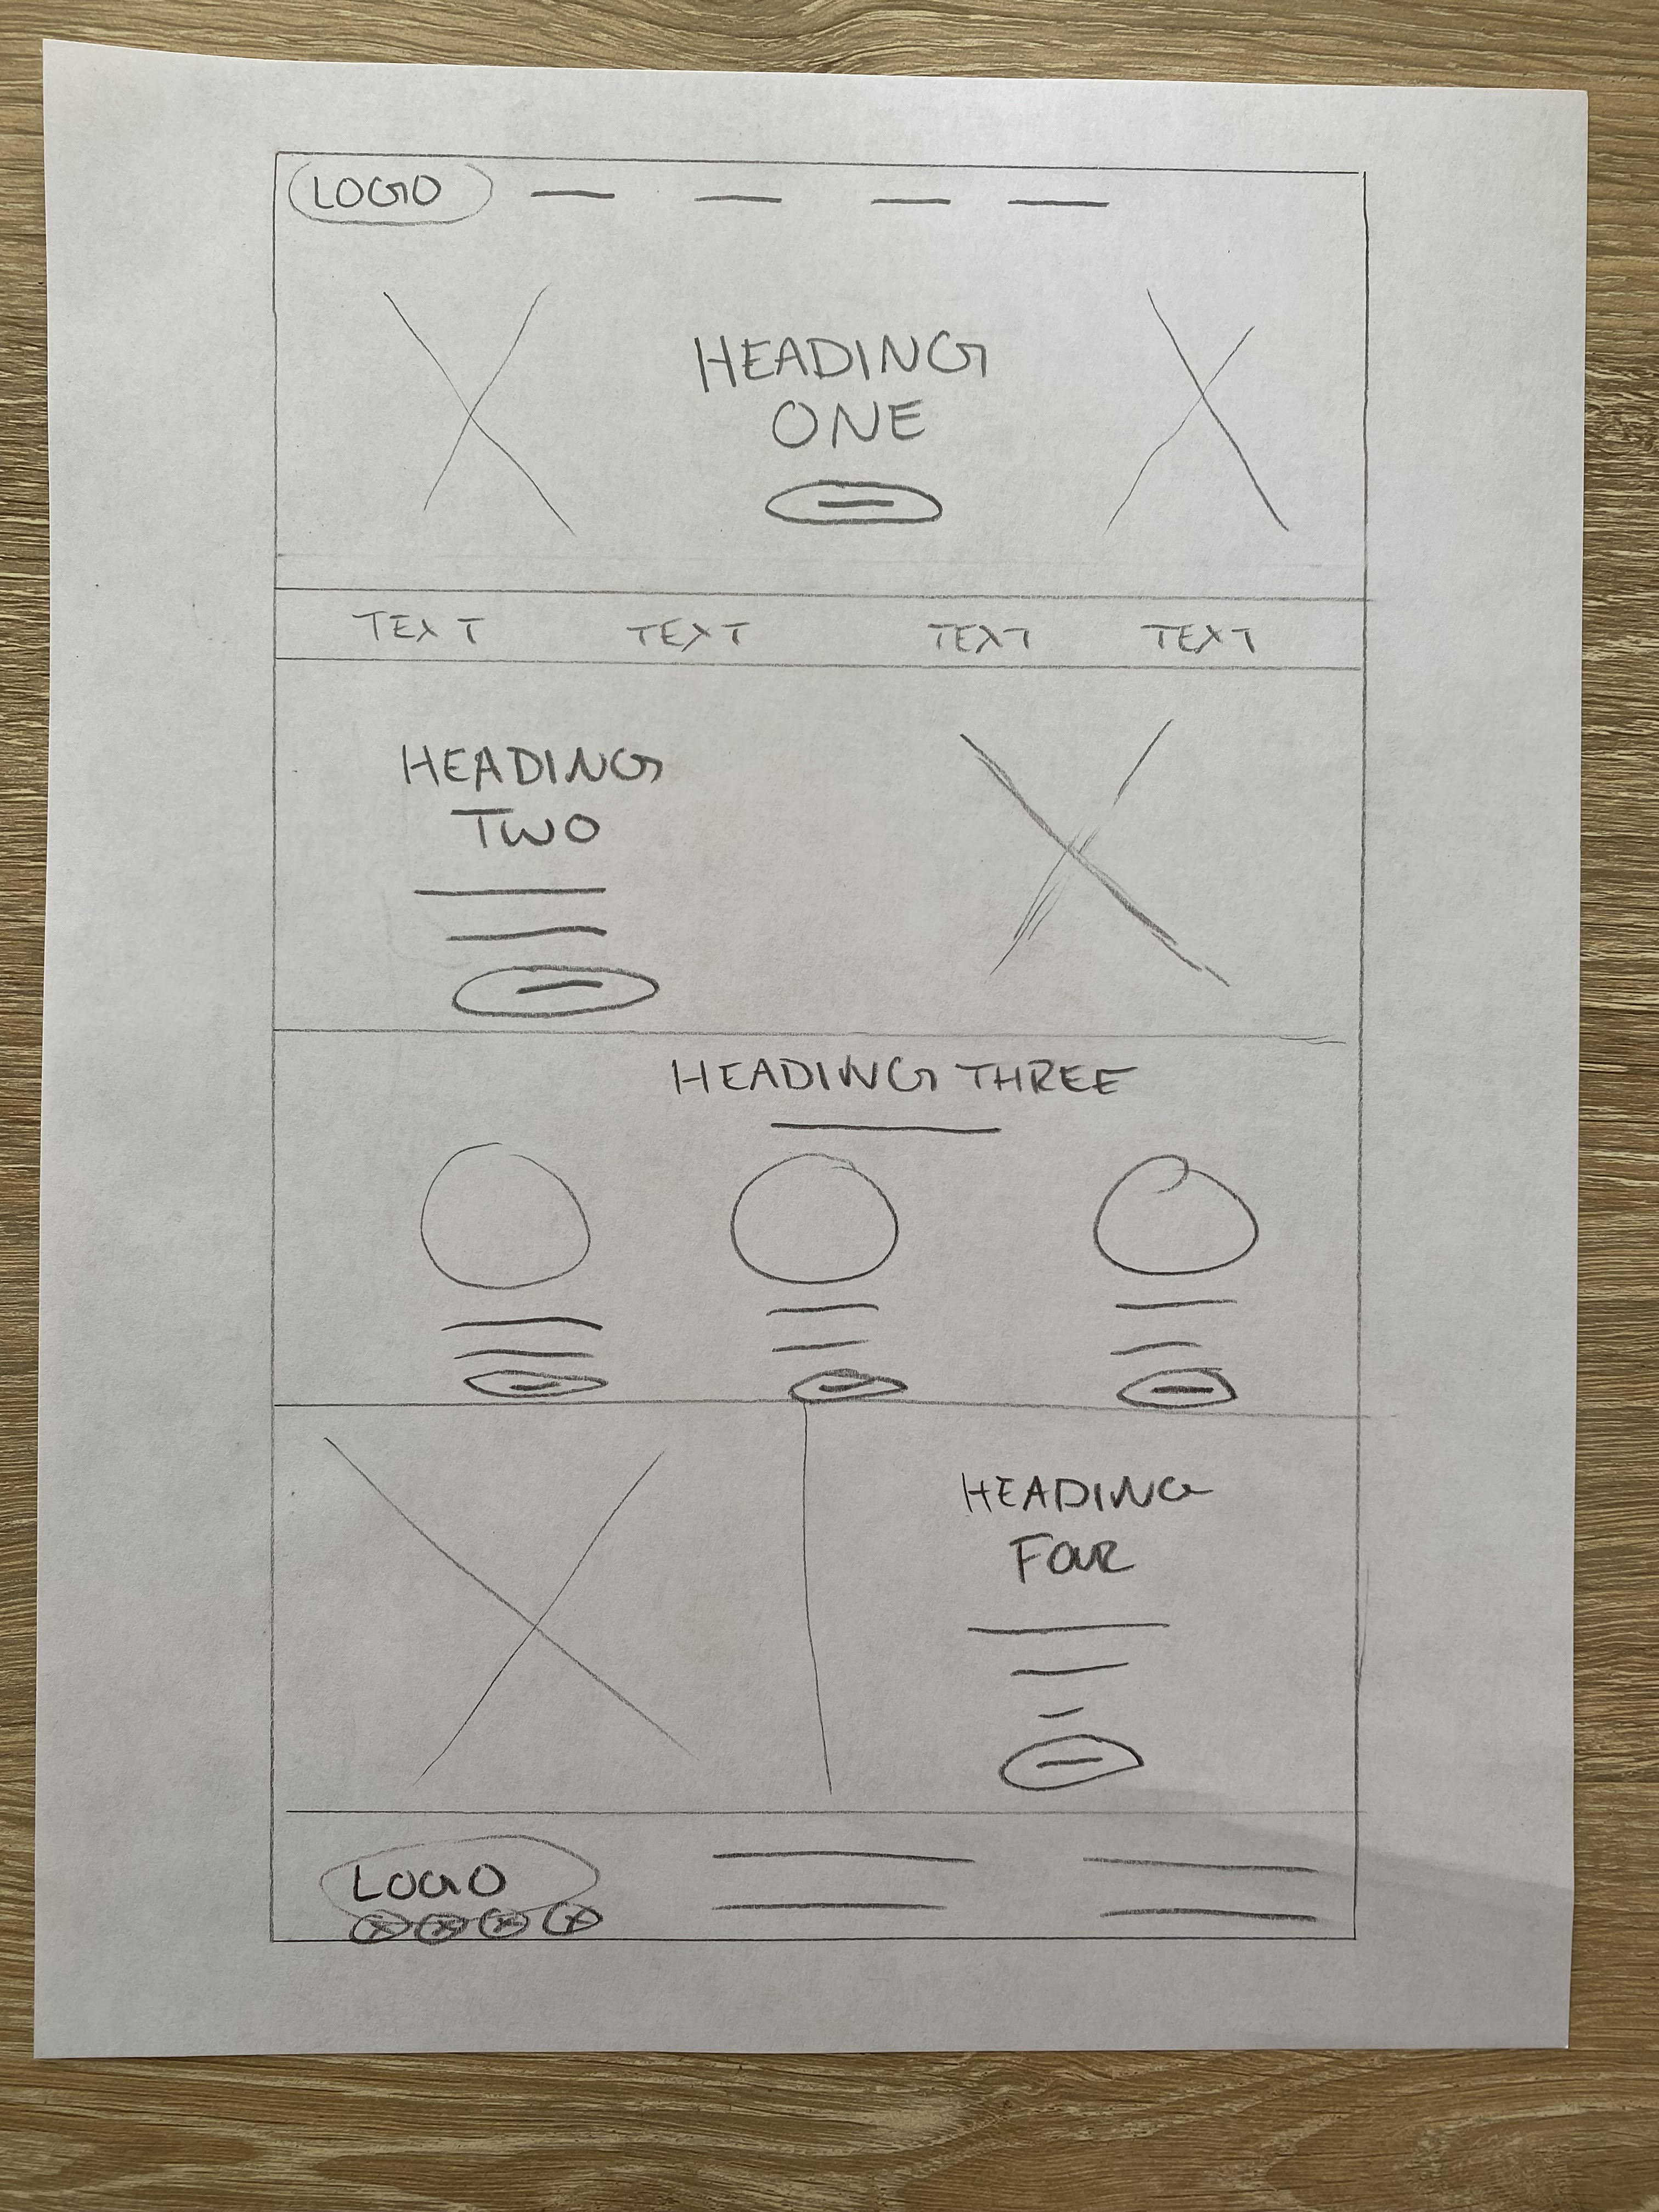 LOGO
HEADING
ONE
TEXT TEXT TEXT TEXT
HEADING
TWO
HEADING THREE
HEADING
FOUR
LOGO